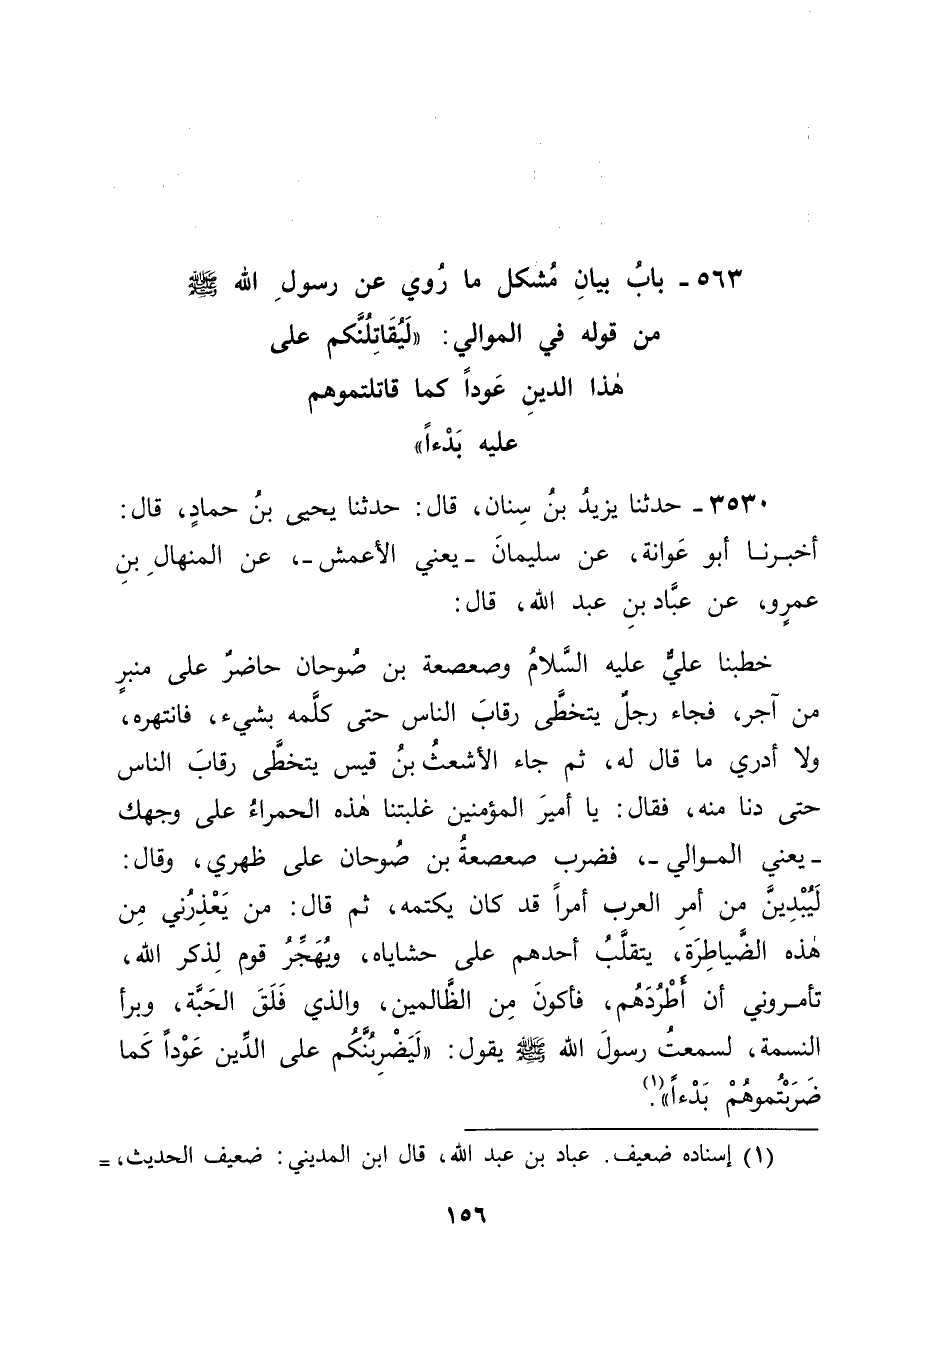 ٥٦٣ ـ بابُ بيانِ مُشكل ما رُوي عن رسولِ الله ﷺ
من قوله في الموالي: «لَيُقَاتِلُنَّكم على
هٰذا الدينِ عَوداً كما قاتلتموهم
عليه بَدْءاً»
٣٥٣٠ ـ حدثنا يزيدُ بنُ سِنان، قال: حدثنا يحيى بنُ حمادٍ، قال:
أخبرنا أبو عَوانة، عن سليمانَ ـ يعني الأعمش ـ، عن المنهالِ بنِ
عمرٍو، عن عبَّاد بنِ عبد الله، قال:
خطبنا عليٌّ عليه السَّلامُ وصعصعة بن صُوحان حاضرٌ على منبرٍ
من آجر، فجاء رجلٌ يتخطَّى رقابَ الناس حتى كلَّمه بشيء، فانتهره،
ولا أدري ما قال له، ثم جاء الأشعثُ بنُ قيس يتخطَّى رقابَ الناس
حتى دنا منه، فقال: يا أميرَ المؤمنين غلبتنا هٰذه الحمراءُ على وجهك
ـ يعني الموالي ـ، فضرب صعصعةُ بن صُوحان على ظهري، وقال:
لَيُبْدِينَّ من أمرِ العرب أمراً قد كان يكتمه، ثم قال: من يَعْذِرُني مِن
هٰذه الضَّياطِرَة، يتقلَّبُ أحدهم على حشاياه، ويُهَجِّرُ قوم لِذكر الله،
تأمروني أن أَطْرُدَهُم، فأكونَ مِن الظَّالمين، والذي فَلَقَ الحَبَّة، وبرأ
النسمة، لسمعتُ رسولَ الله ﷺ يقول: «لَيَضْرِبُنَّكُم على الدِّين عَوْداً كَما
ضَرَبْتُموهُمْ بَدْءاً»(١).
(١) إسناده ضعيف. عباد بن عبد الله، قال ابن المديني: ضعيف الحديث، =
١٥٦